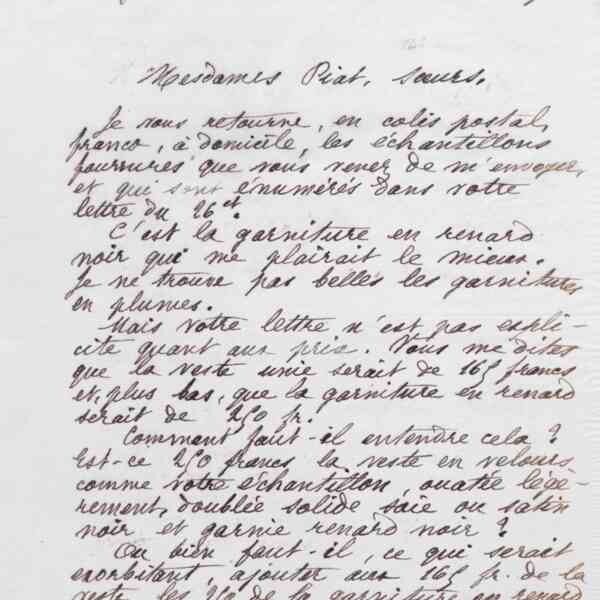 Mesdames Piat, sœurs.
Je vous retourne, en colis postal,
franco, à domicile, les échantillons
fourrures que vous venez de m'envoyer,
et qui sont énumérés dans votre
lettre du 26 ct.
C'est la garniture en renard
noir qui me plairait le mieux.
Je ne trouve pas belles les garnitures
en plumes.
Mais votre lettre n'est pas expli-
cite quant aux prix. Vous me dites
que la veste unie serait de 165 francs
et, plus bas, que la garniture en renard
serait de 250 fr.
Comment faut-il entendre cela ?
Est-ce 250 francs la veste en velours
comme votre échantillon, ouatée légè-
rement, doublée solide soie ou satin
noir et garnie renard noir ?
Ou bien faut-il, ce qui serait
exorbitant, ajouter aux 165 fr. de la
veste les 250 de la garniture en renard